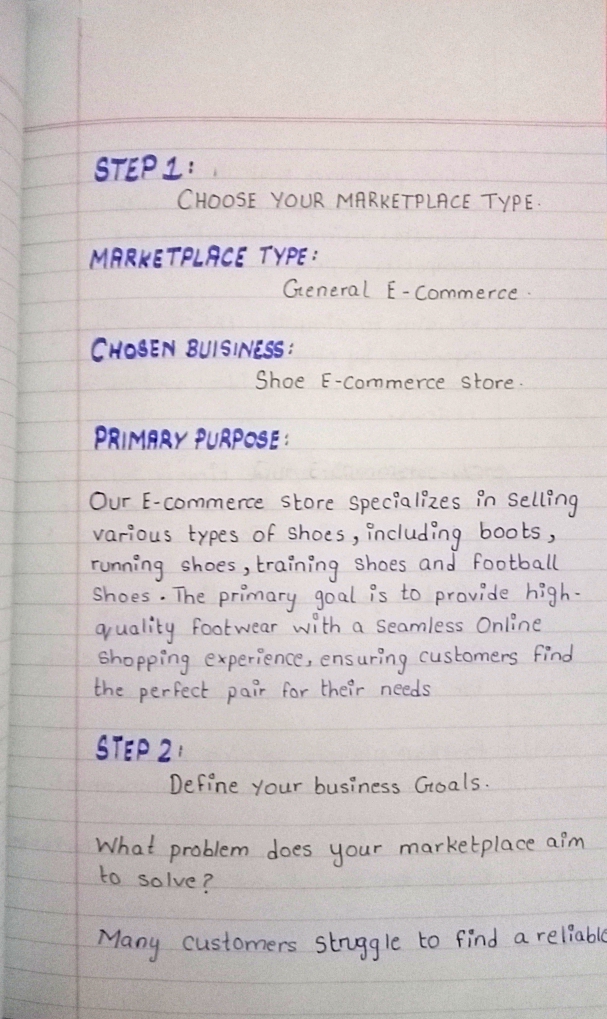 STEP 1:
CHOOSE YOUR MARKETPLACE TYPE.
MARKETPLACE TYPE:
General E-Commerce.
CHOSEN BUISINESS:
Shoe E-commerce store.
PRIMARY PURPOSE:
Our E-commerce store specializes in selling
various types of shoes, including boots,
running shoes, training shoes and football
shoes. The primary goal is to provide high-
quality footwear with a seamless Online
shopping experience, ensuring customers find
the perfect pair for their needs
STEP 2:
Define your business Goals.
What problem does your marketplace aim
to solve?
Many customers struggle to find a reliable